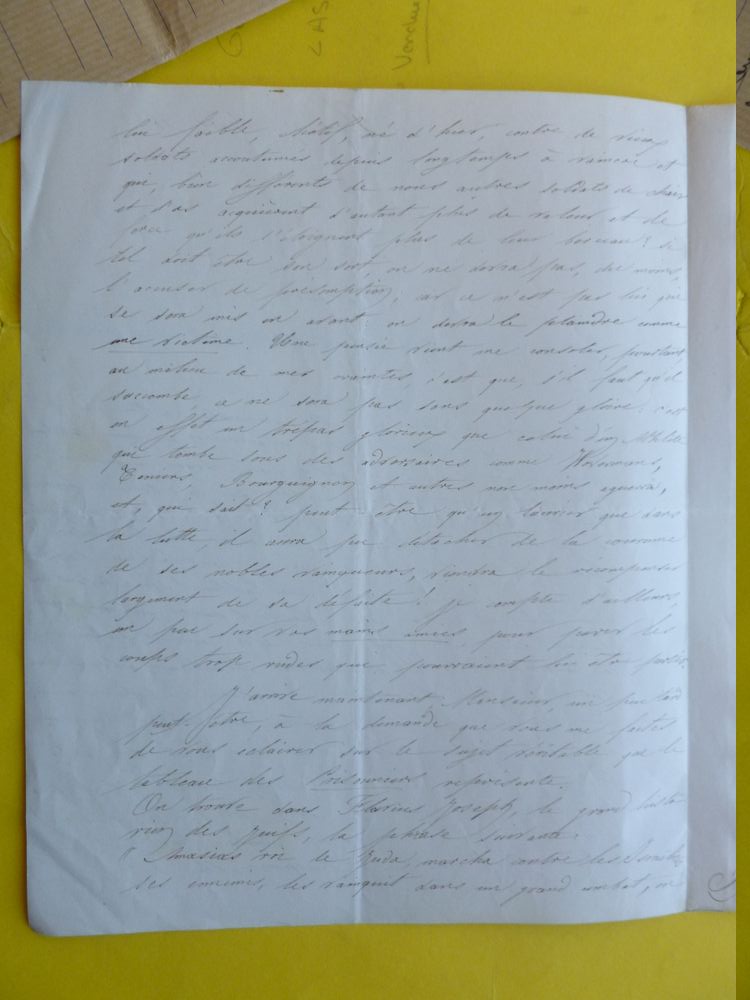 lui faible, chétif, né d'hier, contre de vieux
soldats accoutumés depuis longtemps à vaincre et
qui, bien différents de nous autres soldats de chair
et d'os acquièrent d'autant plus de valeur et de
force qu'ils s'éloignent plus de leur berceau ? si
tel doit être son sort, on ne devra pas, du moins,
l'accuser de présomption, car ce n'est pas lui qui
se sera mis en avant : on devra le plaindre comme
une victime. Une pensée vient me consoler, pourtant
au milieu de mes craintes, c'est que, s'il faut qu'il
succombe ce ne sera pas sans quelque gloire. c'est
en effet un trépas glorieux que celui d'un Athlète
qui tombe sous des adversaires comme
Teniers, Bourguignon et autres non moins
et, qui sait ? peut-être qu'un laurier que dans
la lutte, il aura pu détacher de la couronne
de ses nobles vainqueurs, viendra le récompenser
largement de sa défaite ! je compte d'ailleurs,
un peu sur vos mains amies pour parer les
coups trop rudes que pourraient lui être portés
J'arrive maintenant, Monsieur, un peu tard
peut-être, à la demande que vous me faites
de vous éclairer sur le sujet véritable que le
tableau des Prisonniers représente.
On trouve dans Flavius Joseph, le grand histo
rien des Juifs, la phrase suivante :
"Amasias roi de Juda, marcha contre les
ses ennemis, les vainquit dans un grand combat, en